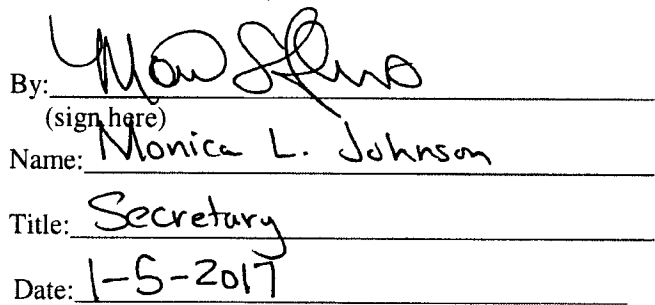 By:
(sign here)
Name: Monica L. Johnson
Title: Secretary
Date: 1-5-2017